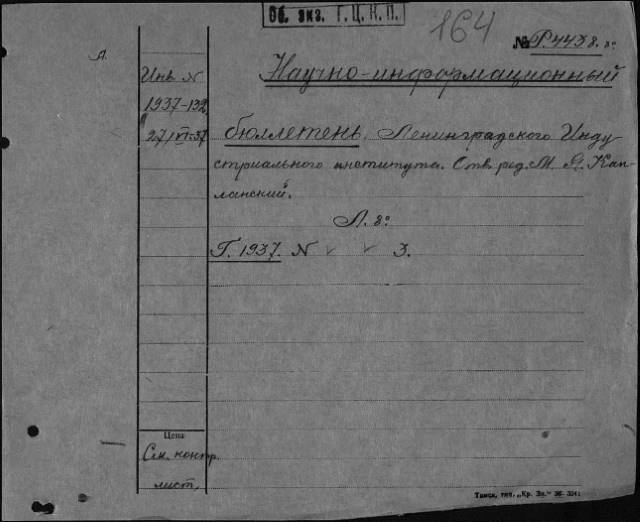 Об. экз. Г.Ц.К.П.
164
№ Р.4438. 8º
Л.
Инв. N
1937-132
27/VI-37
Научно-информационный
бюллетень. Ленинградского Инду
стриального института. Отв. ред. М. Я. Кап-
ланский.
Л. 8º
Г. 1937. N ✓ ✓ 3.
Цена
См. контр.
лист.
Томск, тип. „Кр. Зн."